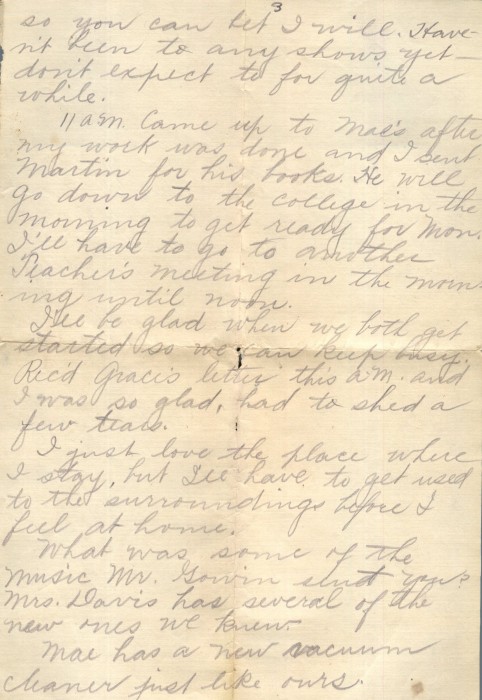 3
so you can bet I will. Have-
n't been to any shows yet—
don't expect to for quite a
while.
11 a.m. Came up to Mae's after
my work was done and I sent
Martin for his books. He will
go down to the college in the
morning to get ready for Mon.
I'll have to go to another
Teacher's meeting in the morn-
ing until noon.
I'll be glad when we both get
started so we can keep busy.
Rec'd Grace's letter this a.m. and
I was so glad, had to shed a
few tears.
I just love the place where
I stay, but I'll have to get used
to the surroundings before I
feel at home.
What was some of the
music Mr. Gowin sent you?
Mrs. Davis has several of the
new ones we knew.
Mae has a new vacuum
cleaner just like ours.